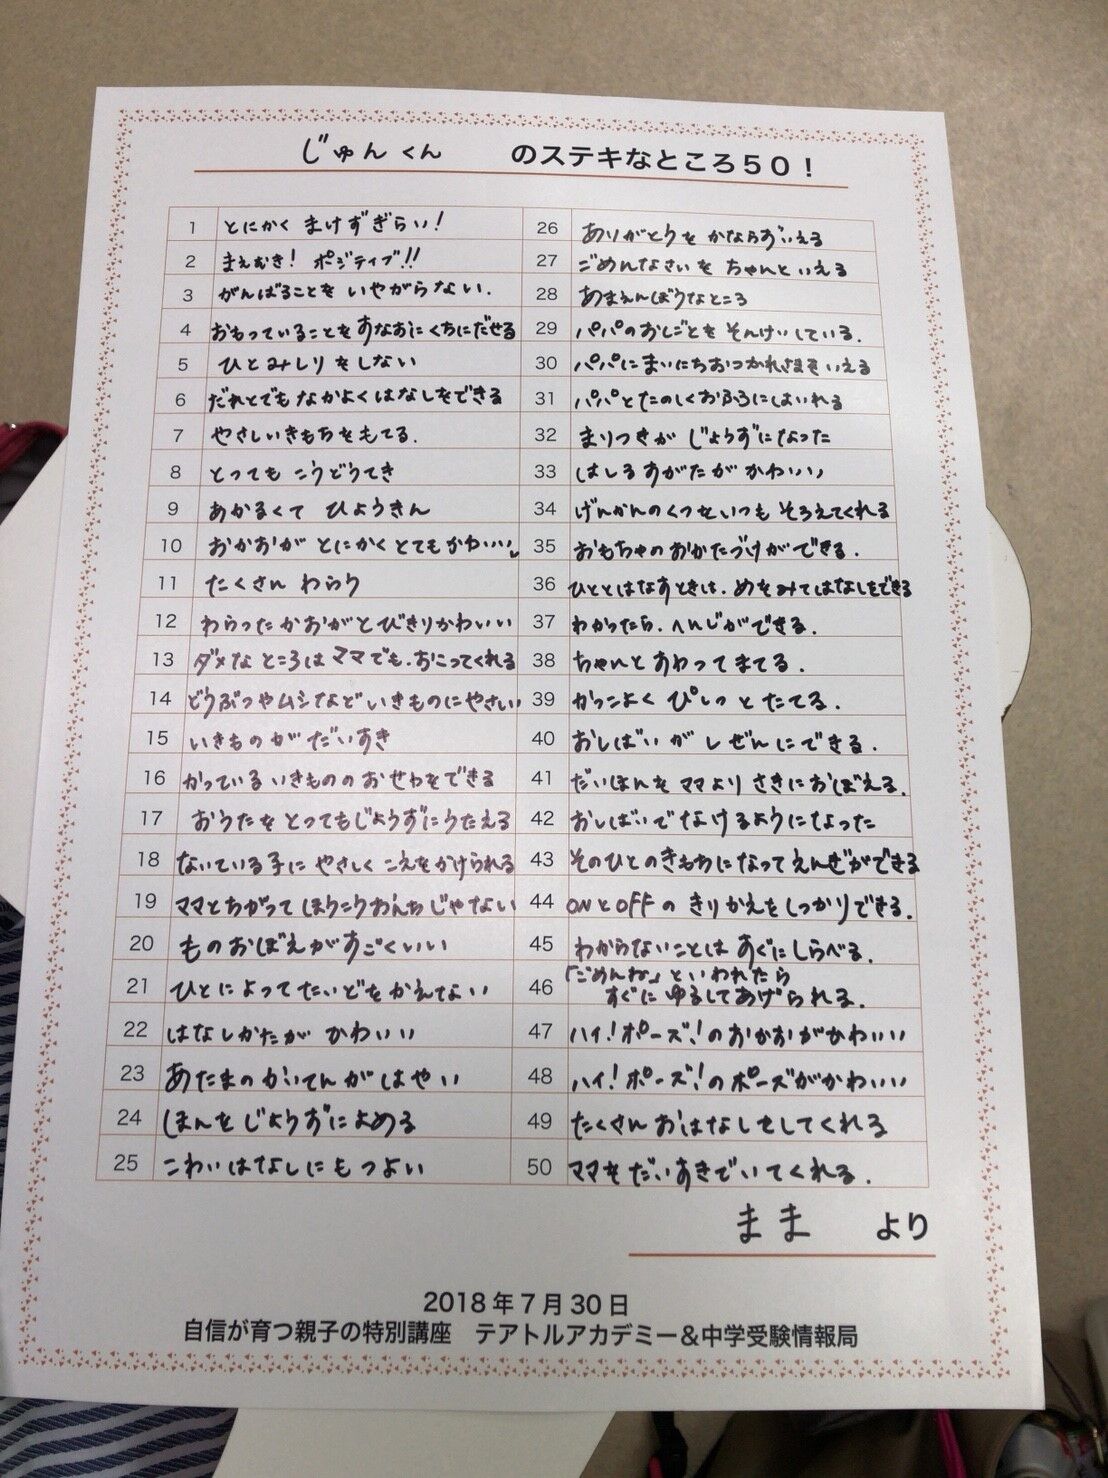 じゅんくん のステキなところ50！
1 とにかく まけずぎらい！
2 まえむき！ ポジティブ！！
3 がんばることを いやがらない．
4 おもっていることをすなおにくちにだせる
5 ひとみしりをしない
6 だれとでもなかよくはなしをできる
7 やさしいきもちをもてる．
8 とっても こうどうてき
9 あかるくて ひょうきん
10 おかおが とにかくとてもかわいい
11 たくさん わらう
12 わらったかおがとびきりかわいい
13 ダメなところはママでも、おこってくれる
14 どうぶつやムシなどいきものにやさしい
15 いきものがだいすき
16 かっているいきもののおせわをできる
17 おうたをとってもじょうずにうたえる
18 ないている子にやさしくこえをかけられる
19 ママとちがってほうこうおんちじゃない
20 ものおぼえがすごくいい
21 ひとによってたいどをかえない
22 はなしかたが かわいい
23 あたまのかいてんがはやい
24 ほんをじょうずによめる
25 こわいはなしにもつよい
26 ありがとうをかならずいえる
27 ごめんなさいをちゃんといえる
28 あまえんぼうなところ
29 パパのおしごとをそんけいしている．
30 パパにまいにちおつかれさまをいえる
31 パパとたのしくおふろにはいれる
32 まりつきがじょうずになった
33 はしるすがたがかわいい
34 げんかんのくつをいつもそろえてくれる
35 おもちゃのおかたづけができる．
36 ひととはなすときは、めをみてはなしをできる
37 わかったら、へんじができる．
38 ちゃんとすわってまてる．
39 かっこよく ぴしっとたてる．
40 おしばいがしぜんにできる．
41 だいほんをママよりさきにおぼえる．
42 おしばいでなけるようになった
43 そのひとのきもちになってえんぎができる
44 ONとOFFのきりかえをしっかりできる．
45 わからないことはすぐにしらべる．
46 「ごめんね」といわれたら
すぐにゆるしてあげられる．
47 ハイ！ポーズ！のおかおがかわいい
48 ハイ！ポーズ！のポーズがかわいい
49 たくさんおはなしをしてくれる
50 ママをだいすきでいてくれる．
まま より
2018年7月30日
自信が育つ親子の特別講座 テアトルアカデミー＆中学受験情報局